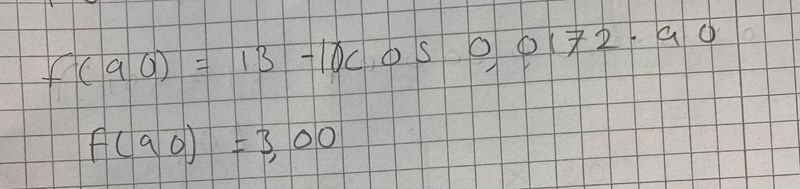 f(90) = 13 - 10cos 0,0172 · 90
f(90) = 3,00